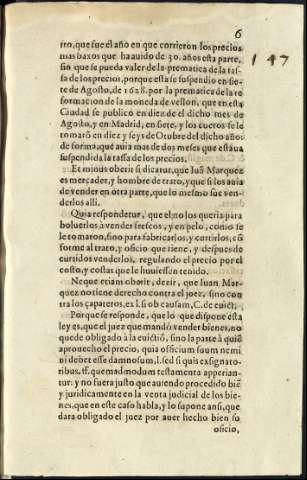 6
147
tro, que fue el año en que corrieron los precios
mas baxos que ha auido de 30. años esta parte,
sin que se pueda valer de la prematica de la tas-
sa de los precios, porque esta se suspendio en sie-
te de Agosto, de 1628. por la prematica de la re
formacion de la moneda de vellon, que en esta
Ciudad se publico en diez de el dicho mes de
Agosto, y en Madrid, en siete, y los cueros se le
tomarõ en diez y seys de Otubre del dicho año:
de forma, que auia mas de dos meses que estaua
suspendida la tassa de los precios.
Et minus oberit si dicatur, que luã Marquez
es mercader, y hombre de trato, y que si los auia
de vender en otra parte, que lo mesmo fue ven-
derlos alli.
Quia respondetur, que el no los queria para
boluerlos à vender frescos, y en pelo, como se
le tomaron, sino para fabricarlos, y curtirlos, cõ
forme al trato, y oficio que tiene, y despues de
curtidos venderlos, regulando el precio por el
costo, y costas que le huuiessen tenido.
Neque etiam oberit, dezir, que Iuan Mar-
quez no tiene derecho contra el juez, sino con
tra los çapateros, ex l. si ob causam, C. de euict.
Porque se responde, que lo que dispone esta
ley es, que el juez que mandò vender bienes, no
quede obligado à la euictiõ, sino la parte à quiẽ
aprouecho el precio, quia officium suum nemi
ni debet esse damnosum, l. sed si quis exsignato-
ribus. ff. quemadmodum testamenta apperian-
tur: y no fuera justo que auiendo procedido biẽ
y juridicamente en la venta judicial de los bie-
nes, que en este caso habla, y lo supone ansi, que
dara obligado el juez por auer hecho bien su
oficio,